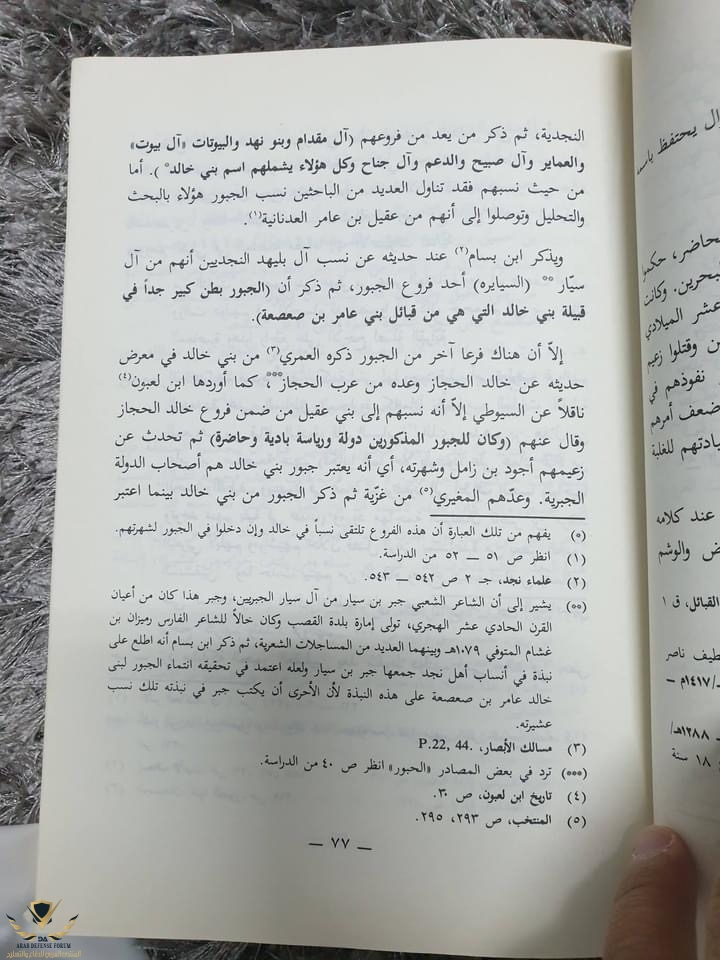 النجدية، ثم ذكر من يعد من فروعهم (آل مقدام وبنو نهد والبيوتات «آل بيوت»
والعماير وآل صبيح والدعم وآل جناح وكل هؤلاء يشملهم اسم بني خالد* ). أما
من حيث نسبهم فقد تناول العديد من الباحثين نسب الجبور هؤلاء بالبحث
والتحليل وتوصلوا إلى أنهم من عقيل بن عامر العدنانية(١).
ويذكر ابن بسام(٢) عند حديثه عن نسب آل بليهد النجديين أنهم من آل
سيّار ** (السيايره) أحد فروع الجبور، ثم ذكر أن (الجبور بطن كبير جداً في
قبيلة بني خالد التي هي من قبائل بني عامر بن صعصعة).
إلاّ أن هناك فرعا آخر من الجبور ذكره العمري(٣) من بني خالد في معرض
حديثه عن خالد الحجاز وعده من عرب الحجاز***، كما أوردها ابن لعبون(٤)
ناقلاً عن السيوطي إلاّ أنه نسبهم إلى بني عقيل من ضمن فروع خالد الحجاز
وقال عنهم (وكان للجبور المذكورين دولة ورياسة بادية وحاضرة) ثم تحدث عن
زعيمهم أجود بن زامل وشهرته، أي أنه يعتبر جبور بني خالد هم أصحاب الدولة
الجبرية. وعدّهم المغيري(٥) من غزّية ثم ذكر الجبور من بني خالد بينما اعتبر
(*) يفهم من تلك العبارة أن هذه الفروع تلتقى نسباً في خالد وإن دخلوا في الجبور لشهرتهم.
(١) انظر ص ٥١ — ٥٢ من الدراسة.
(٢) علماء نجد، جـ ٢ ص ٥٤٢ — ٥٤٣.
(**) يشير إلى أن الشاعر الشعبي جبر بن سيار من آل سيار الجبريين، وجبر هذا كان من أعيان
القرن الحادي عشر الهجري، تولى إمارة بلدة القصب وكان خالاً للشاعر الفارس رميزان بن
غشام المتوفي ١٠٧٩هـ وبينهما العديد من المساجلات الشعرية، ثم ذكر ابن بسام أنه اطلع على
نبذة في أنساب أهل نجد جمعها جبر بن سيار ولعله اعتمد في تحقيقه انتماء الجبور لبنى
خالد عامر بن صعصعة على هذه النبذة لأن الأحرى أن يكتب جبر في نبذته تلك نسب
عشيرته.
(٣) مسالك الأبصار، .P.22, 44
(***) ترد في بعض المصادر «الحبور» انظر ص ٤٠ من الدراسة.
(٤) تاريخ ابن لعبون، ص ٣٠.
(٥) المنتخب، ص ٢٩٣، ٢٩٥.
— ٧٧ —
ال يحتفظ باسمه
حاضر، حكموا
بحرين. وكانت
عشر الميلادي
ن وقتلوا زعيم
نفوذهم في
ضعف أمرهم
يادتهم للغلبة
عند كلامه
ض والوشم
القبائل، ق ١
طيف ناصر
ـ/١٤١٧م —
١٢٨٨هـ/
١٨ سنة
ARAB DEFENSE FORUM
المنتدى العربي للدفاع والتسليح